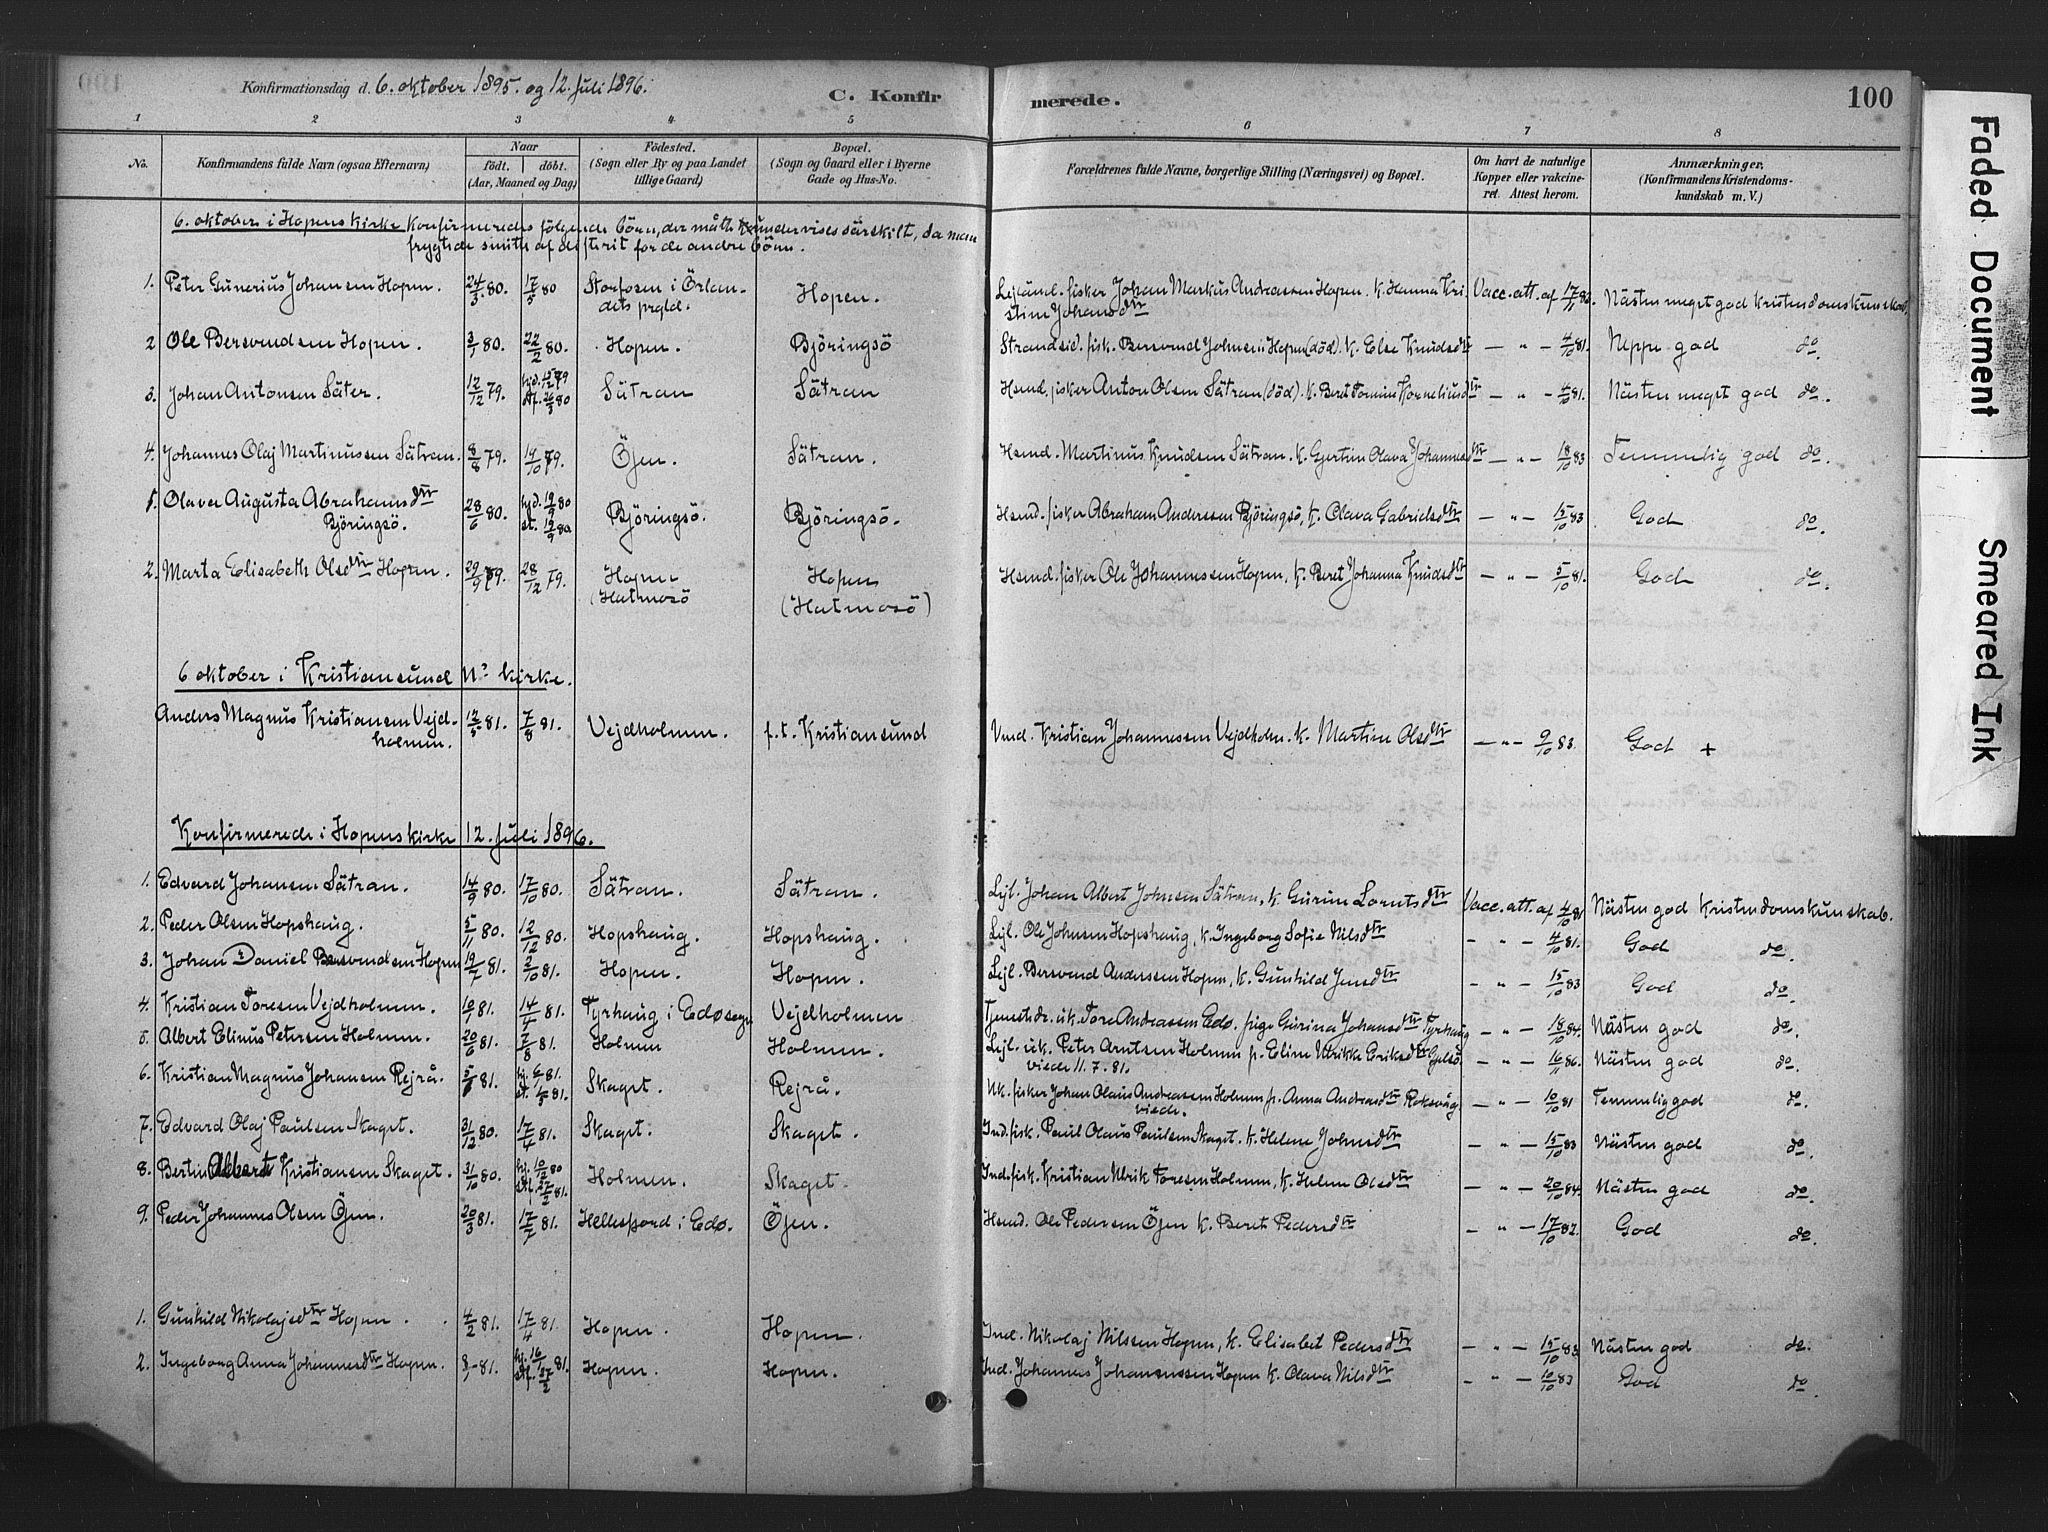 Konfirmationsdag d. 6. oktober 1895. og 12. Juli 1896.
C. Konfirmerede.
100
1 2 3 4 5 6 7 8
No.
Konfirmandens fulde Navn (ogsaa Efternavn)
Naar
födt. döbt.
(Aar, Maaned og Dag)
Födested.
(Sogn eller By og paa Landet
tillige Gaard)
Bopæl.
(Sogn og Gaard eller i Byerne
Gade og Hus-No.
Forældrenes fulde Navne, borgerlige Stilling (Næringsvei) og Bopæl.
Om havt de naturlige
Kopper eller vakcine-
ret. Attest herom.
Anmærkninger.
(Konfirmandens Kristendoms-
kundskab m. V.)
6. oktober i Hopens kirke konfirmeredes følgende börn, der måtte undervises särskilt, da man
frygtede smitte af difterit for de andre börn.
1. Peter Gunerius Johansen Hopen. 24/3 80. 17/5 80 Storfosen i Örlan- Hopen. Lejländ. fisker Johan Markus Andreassen Hopen. K. Hanna Kri- Vacc. att. af 17/11 82. Nästen meget god kristendomskunskab.
dets prgld. stine Johansdtr
2 Ole Bersvendsen Hopen. 3/1 80. 22/2 80. Hopen. Björingsö Strandsid. fisk. Bersvend Johnsen Hopen (död). K. Else Knudsdtr — " — 4/10 81. Neppe god do.
3. Johan Antonsen Säter. 12/12 79. hjd. 15/12 79 Sätran Sätran Hsmd. fisker Anton Olsen Sätran (död). K. Beret Tomine Korneliusdtr — " — 4/10 81. Nästen meget god do.
stf. 26/3 80
4. Johannes Olaj Martinussen Sätran. 8/8 79. 19/10 79. Öjen. Sätran. Hsmd. Martinus Knudsen Sätran. K. Gjertine Olava Johannesdtr — " — 18/10 83 Temmelig god do.
5. Olava Augusta Abrahamsdtr 28/6 80. hjd. 19/9 80 Björingsö. Björingsö. Hsmd. fisker Abraham Anderssen Björingsö, K. Olava Gabrielsdtr — " — 15/10 83 God do.
Björingsö. st. 19/9 80.
2. Marta Elisabeth Olsdtr Hopen. 29/9 79. 28/12 79. Hopen Hopen Hsmd. fisker Ole Johannessen Hopen, K. Beret Johanna Knudsdtr — " — 5/10 81. God do.
(Hatmosö (Hatmosö)
6 oktober i Kristiansund Ns kirke.
Anders Magnus Kristiansen Vejd- 12/5 81. 7/8 81. Vejdholmen. f. t. Kristiansund Ind. Kristian Johannessen Vejdholm. K. Martine Olsdtr — " — 9/10 83. God +
holmen.
Konfirmerede i Hopens kirke 12. Juli 1896.
1. Edvard Johansen Sätran. 14/9 80. 17/10 80. Sätran. Sätran. Lejl. Johan Albert Johnsen Sätran, K. Gurine Lorntsdtr Vacc. att. af 4/10 81 Nästen god Kristendomskunskab.
2. Peder Olsen Hopshaug. 5/11 80. 12/12 80. Hopshaug. Hopshaug. Lejl. Ole Johnsen Hopshaug, K. Ingeborg Sofie Nilsdtr - " - 4/10 81. God do.
3. Johan Daniel Bersvendsen Hopen 19/7 81. 2/10 81. Hopen. Hopen. Lejl. Bersvend Anderssen Hopen, K. Gunhild Jensdtr - " - 15/10 83 God do.
4. Kristian Toresen Vejdholmen. 10/1 81. 14/4 81. Tyrhaug i Edøsogn Vejelholmen Tjenestedr. uk. Tore Andreassen Edø. pige Gurina Johansdtr Tyrhaug - " - 18/10 84. Nästen god do.
5. Albert Elinus Petersen Holmen. 20/6 81. 7/8 81. Holmen Holmen. Lejl. uk. Peter Arntsen Holmen p. Eline Ulrikke Eriksdtr - " - 16/11 86. Nästen god do.
viede 11. 7. 81.
6. Kristian Magnus Johansen Rejrå. 81. Skaget. Rejrå. Uk. fisker Johan Olaus Andreasen Holmen p. Anna Andreasdtr Roksvåg — " — 10/10 81 Temmelig god do.
viede.
7. Edvard Olaj Paulsen Skaget. 31/12 80. 17/4 81. Skaget. Skaget. Ind. fisk. Paul Olaus Paulsen Skaget. K. Helene Johnsdtr - " - 15/10 83 Nästen god do.
8. Bertin Albert Kristiansen Skaget. 31/10 80. hj. 10/12 80 Holmen. Skaget. Ind. fisk. Kristian Ulrik Toresen Holmen, K. Helene Olsdtr - " - 20/10 84. Nästen god do.
stf. 27/2 81.
9. Peder Johannes Olsen Öjen. 20/3 81. 17/7 81. Hellesfjord i Edø. Öjen. Hsmd. Ole Pedersen Öjen K. Beret Pedersdtr - " - 17/10 82. God do.
1. Gunhild Nikolajsdtr Hopen. 4/2 81. 17/4 81. Hopen. Hopen. Ind. Nikolaj Nilssen Hopen, K. Elisabet Pedersdtr - " - 15/10 83 Nästen god do.
2. Ingeborg Anna Johannesdtr Hopen. 81. hj. 16/1 81. Hopen. Hopen. Ind. Johannes Johannessen Hopen K. Olava Nilsdtr - " - 10/10 83 God do.
stf. 27/2
Faded Document
Smeared Ink